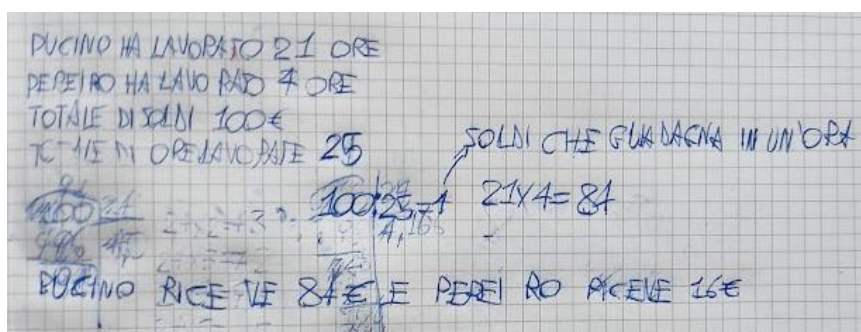 DUCINO HA LAVORATO 21 ORE
PEPEIRO HA LAVORATO 4 ORE
TOTALE DI SOLDI 100€
TOTALE DI ORE LAVORATE 25
SOLDI CHE GUADAGNA IN UN'ORA
100:25=4 21x4=84
DUCINO RICEVE 84€ E PEPEIRO RICEVE 16€